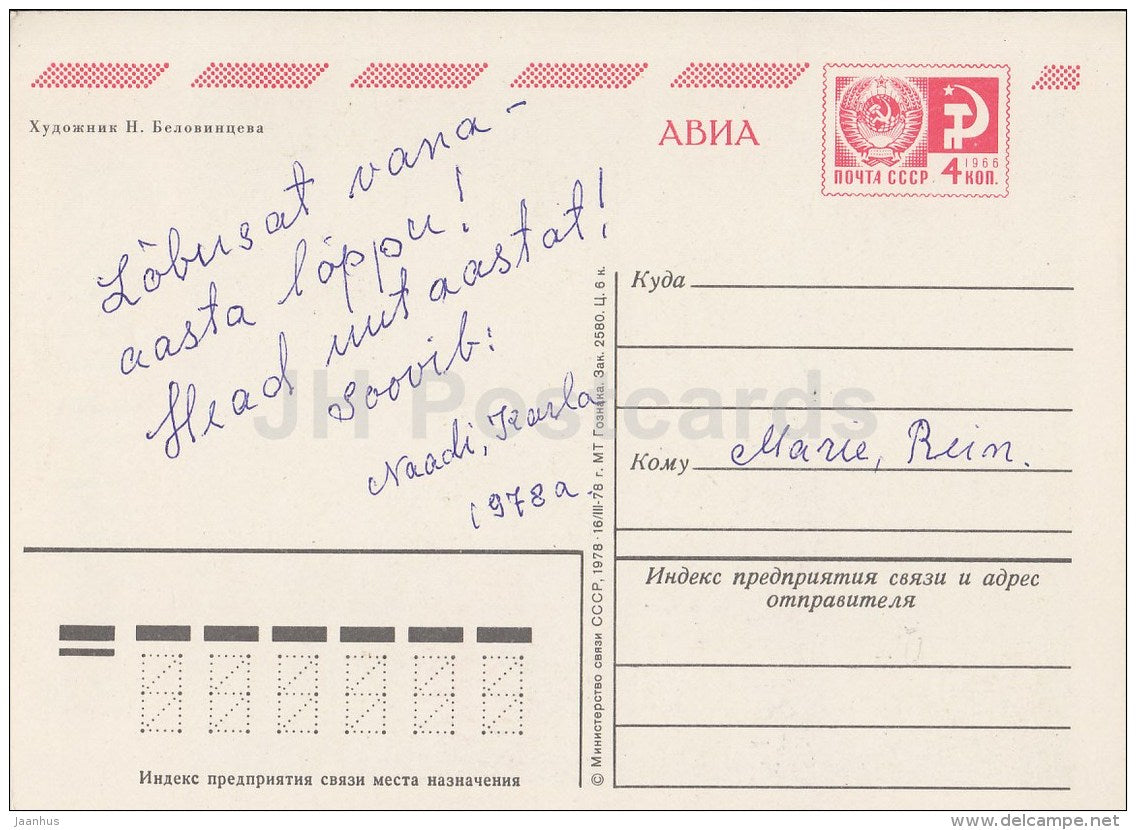 Художник Н. Беловинцева
АВИА
1966
ПОЧТА СССР. 4 КОП.
Lõbusat vana-
aasta lõppu!
Head uut aastat!
Soovib:
Naadi, Karla
1978 a.
Куда
Кому Marie, Rein.
Индекс предприятия связи и адрес
отправителя
© Министерство связи СССР, 1978 · 16/III-78 г. МТ Гознака. Зак. 2580. Ц. 6 к.
Индекс предприятия связи места назначения
JH Postcards
Jaanhus
delcampe.net